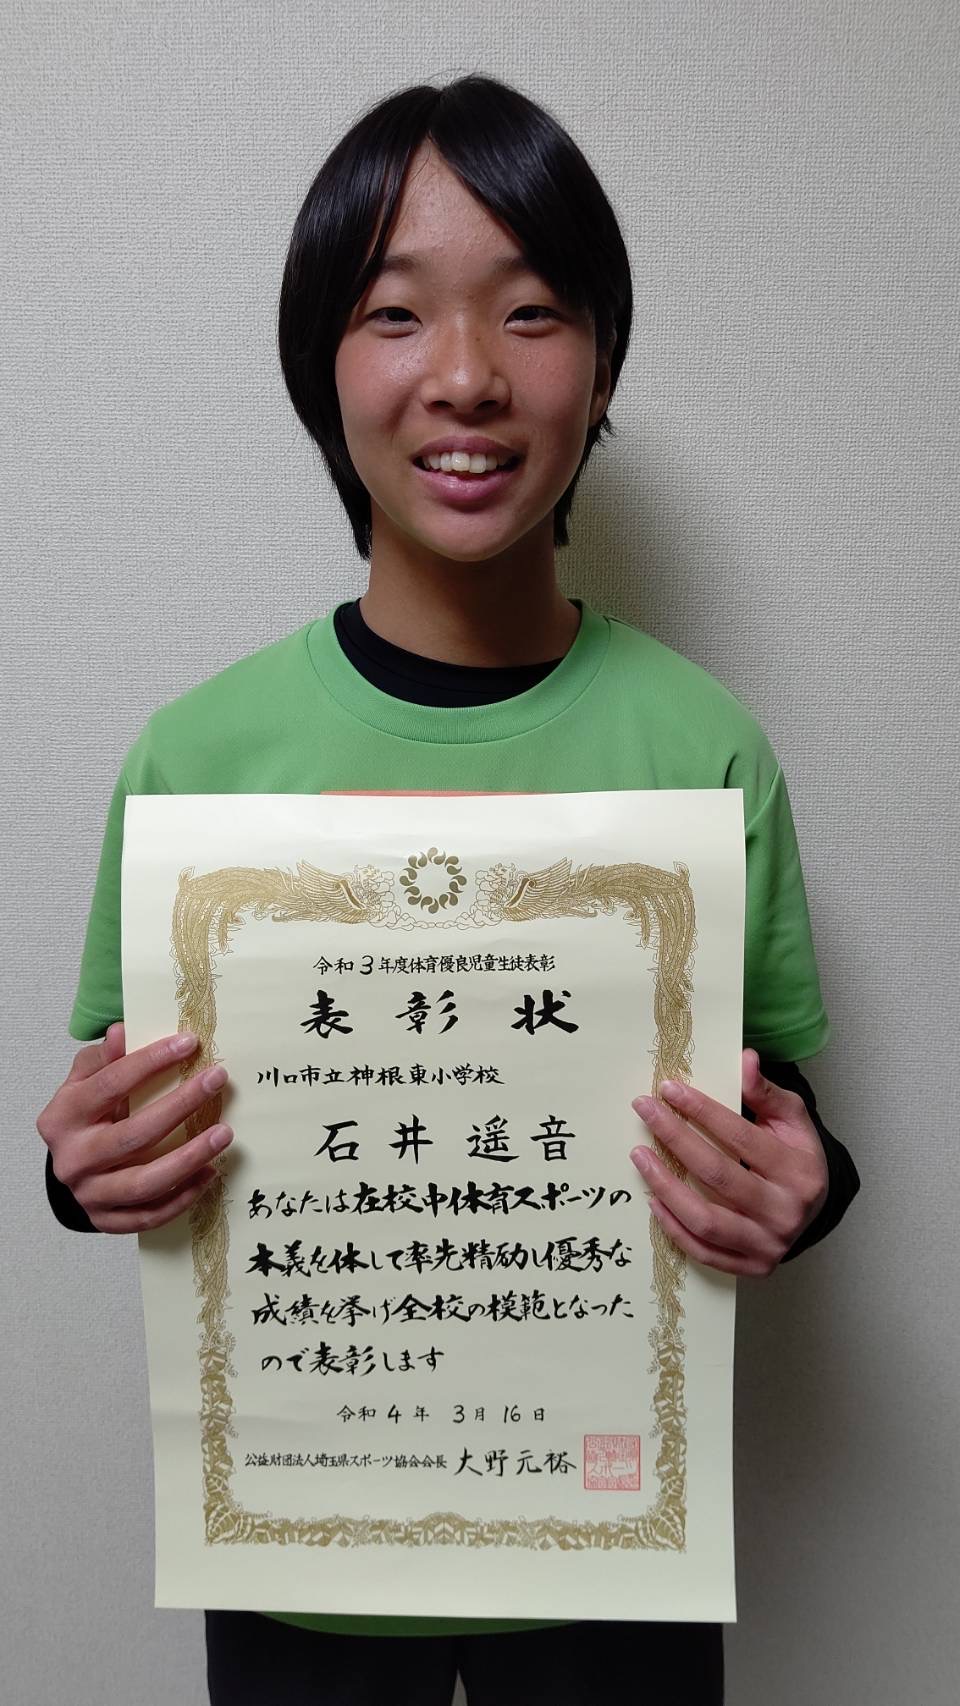 令和3年度体育優良児童生徒表彰
表彰状
川口市立神根東小学校
石井遥音
あなたは在校中体育スポーツの
本義を体して率先精励し優秀な
成績を挙げ全校の模範となった
ので表彰します
令和4年3月16日
公益財団法人埼玉県スポーツ協会会長 大野元裕